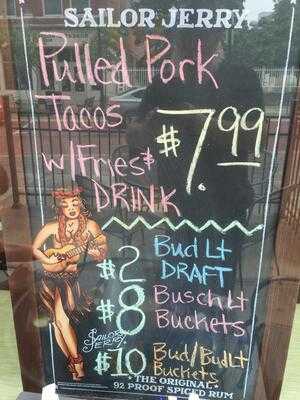 SAILOR JERRY
Pulled Pork
Tacos
w/Fries &
DRINK
$7.99
$2 Bud Lt
DRAFT
$8 Busch Lt
Buckets
$10 Bud/Bud Lt
Buckets
SAILOR
JERRY
• THE ORIGINAL •
92 PROOF SPICED RUM